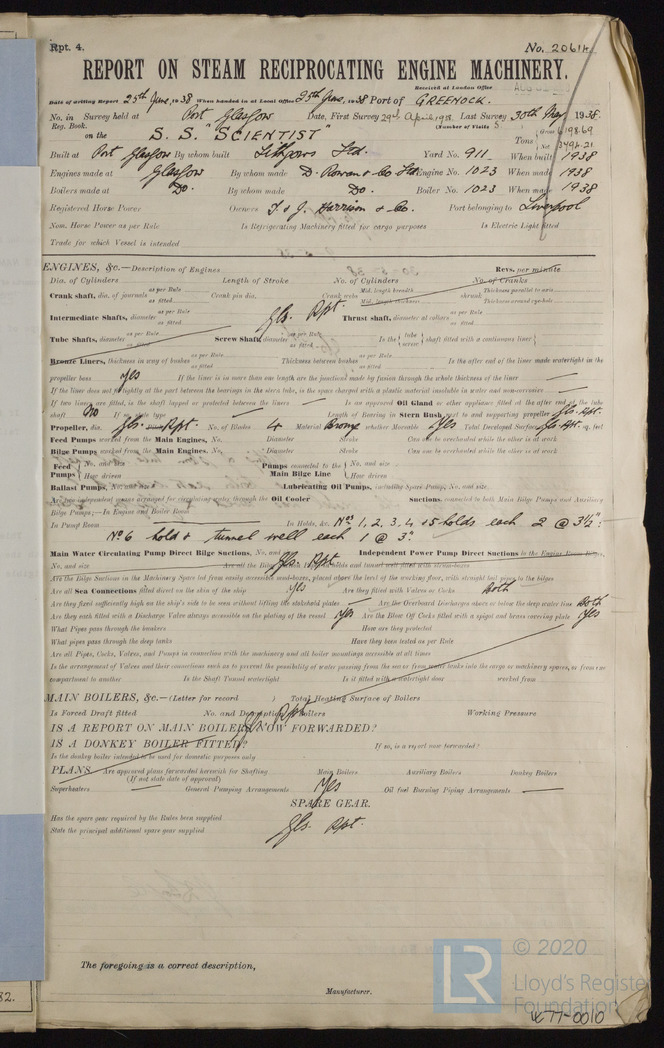 Rpt. 4. No. 20614
REPORT ON STEAM RECIPROCATING ENGINE MACHINERY.
Received at London Office
Date of writing Report 25th June, 1938 When handed in at Local Office 25th June, 1938 Port of GREENOCK.
No. in Survey held at Port Glasgow Date, First Survey 29th April 1938 Last Survey 30th May 1938
Reg. Book. (Number of Visits 5.
on the S. S. "SCIENTIST" Tons Gross 6198.69
Net 3494.21
Built at Port Glasgow By whom built Lithgows Ltd. Yard No. 911 When built 1938
Engines made at Glasgow By whom made D. Rowan & Co Ltd Engine No. 1023 When made 1938
Boilers made at Do. By whom made Do. Boiler No. 1023 When made 1938
Registered Horse Power Owners T & J. Harrison & Co. Port belonging to Liverpool
Nom. Horse Power as per Rule Is Refrigerating Machinery fitted for cargo purposes Is Electric Light fitted
Trade for which Vessel is intended
ENGINES, &c.—Description of Engines Revs. per minute
Dia. of Cylinders Length of Stroke No. of Cylinders No. of Cranks
Crank shaft, dia. of journals as per Rule as fitted Crank pin dia. Crank webs Mid. length breadth Mid. length thickness shrunk Thickness parallel to axis Thickness around eye-hole
Intermediate Shafts, diameter as per Rule as fitted Gls. Rpt. Thrust shaft, diameter at collars as per Rule as fitted
Tube Shafts, diameter as per Rule as fitted Screw Shaft, diameter as per Rule as fitted Is the { tube screw } shaft fitted with a continuous liner {
Bronze Liners, thickness in way of bushes as per Rule as fitted Thickness between bushes as per Rule as fitted Is the after end of the liner made watertight in the
propeller boss yes If the liner is in more than one length are the junctions made by fusion through the whole thickness of the liner —
If the liner does not fit tightly at the part between the bearings in the stern tube, is the space charged with a plastic material insoluble in water and non-corrosive —
If two liners are fitted, is the shaft lapped or protected between the liners — Is an approved Oil Gland or other appliance fitted at the after end of the tube
shaft No If so, state type — Length of Bearing in Stern Bush next to and supporting propeller Gls. Rpt.
Propeller, dia. Gls. Rpt. No. of Blades 4 Material Bronze whether Moveable Yes Total Developed Surface Gls. Rpt. sq. feet
Feed Pumps worked from the Main Engines, No. Diameter Stroke Can one be overhauled while the other is at work
Bilge Pumps worked from the Main Engines, No. Diameter Stroke Can one be overhauled while the other is at work
Feed Pumps { No. and size How driven Pumps connected to the Main Bilge Line { No. and size How driven
Ballast Pumps, No. and size Lubricating Oil Pumps, including Spare Pump, No. and size
Are two independent means arranged for circulating water through the Oil Cooler Suctions, connected to both Main Bilge Pumps and Auxiliary
Bilge Pumps;—In Engine and Boiler Room
In Pump Room In Holds, &c. Nos 1, 2, 3, 4 & 5 holds each 2 @ 3½":
No 6 hold & tunnel well each 1 @ 3".
Main Water Circulating Pump Direct Bilge Suctions, No. and size Gls. Rpt Independent Power Pump Direct Suctions to the Engine Room Bilges,
No. and size Are all the Bilge Suction pipes in holds and tunnel well fitted with strum-boxes
Are the Bilge Suctions in the Machinery Space led from easily accessible mud-boxes, placed above the level of the working floor, with straight tail pipes to the bilges
Are all Sea Connections fitted direct on the skin of the ship Yes Are they fitted with Valves or Cocks Both
Are they fixed sufficiently high on the ship's side to be seen without lifting the stokehold plates — Are the Overboard Discharges above or below the deep water line Both
Are they each fitted with a Discharge Valve always accessible on the plating of the vessel Yes Are the Blow Off Cocks fitted with a spigot and brass covering plate Yes
What Pipes pass through the bunkers How are they protected
What pipes pass through the deep tanks Have they been tested as per Rule
Are all Pipes, Cocks, Valves, and Pumps in connection with the machinery and all boiler mountings accessible at all times
Is the arrangement of Valves and their connections such as to prevent the possibility of water passing from the sea or from water tanks into the cargo or machinery spaces, or from one
compartment to another Is the Shaft Tunnel watertight Is it fitted with a watertight door worked from
MAIN BOILERS, &c.—(Letter for record ) Total Heating Surface of Boilers
Is Forced Draft fitted No. and Description of Boilers Gls. Rpt Working Pressure
IS A REPORT ON MAIN BOILERS NOW FORWARDED?
IS A DONKEY BOILER FITTED? If so, is a report now forwarded?
Is the donkey boiler intended to be used for domestic purposes only
PLANS. Are approved plans forwarded herewith for Shafting Main Boilers Auxiliary Boilers Donkey Boilers
(If not state date of approval)
Superheaters — General Pumping Arrangements Yes Oil fuel Burning Piping Arrangements —
SPARE GEAR.
Has the spare gear required by the Rules been supplied
State the principal additional spare gear supplied Gls. Rpt.
The foregoing is a correct description,
Manufacturer.
82.
© 2020
LR
Lloyd's Register
Foundation
W77-0010